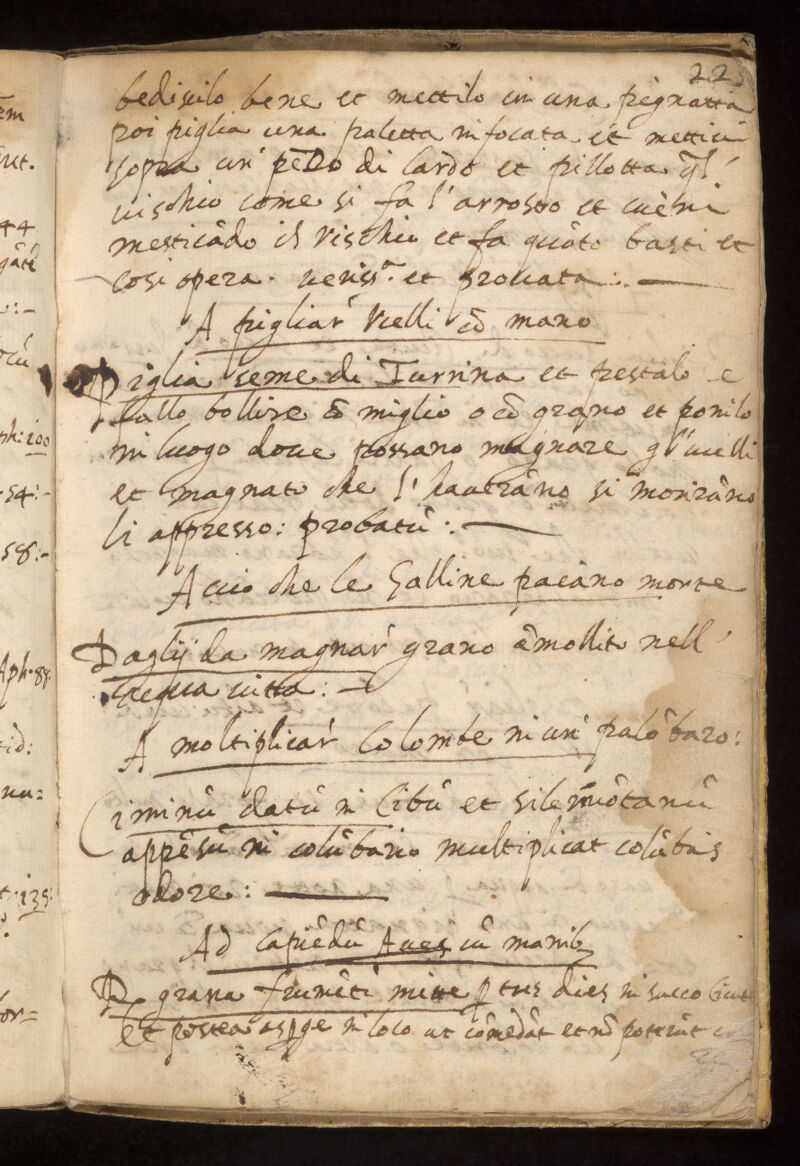 22
bediscilo bene et mettilo in una pignatta
poi piglia una paletta infocata et mettici
sopra un' pezzo di lardo et pillotta ql'
vischio come si fa l'arrosto et vieni
mesticãdo il vischio et fa quãto basti et
cosi opera. veriss.ᵃ et provata:
A pigliar' Vcelli cõ mano
Piglia seme di Turrina et pestalo e
fallo bollire cõ miglio o cõ grano et ponilo
in luogo dove possano magnare gl'ucelli
et magnato che l'haverãno si morirãno
li appresso: probatũ:
Accio che le Galline pacãno morte
Daglij da magnar' grano ãmollito nell'
acqua vitta:
A moltiplicar' Colombe in un' palõbaro:
Ciminũ datũ in Cibũ et silermõtanũ
appẽsũ in colũbario multiplicat colũbas
odore:
Ad Capiẽdũ Aves cũ manib
℞ grana frumẽti mitte p tres dies in succo Cicute
et postea aspge in loco ut comedãt et nõ poterũt
44
ph: 100
54:-
58:-
Aph. 88.
tid:
nu=
t. 135:
or=